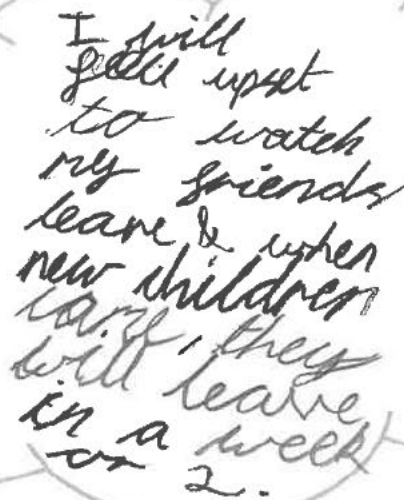 I will
feel upset
to watch
my friends
leave & when
new children
come, they
will leave
in a week
or 2.